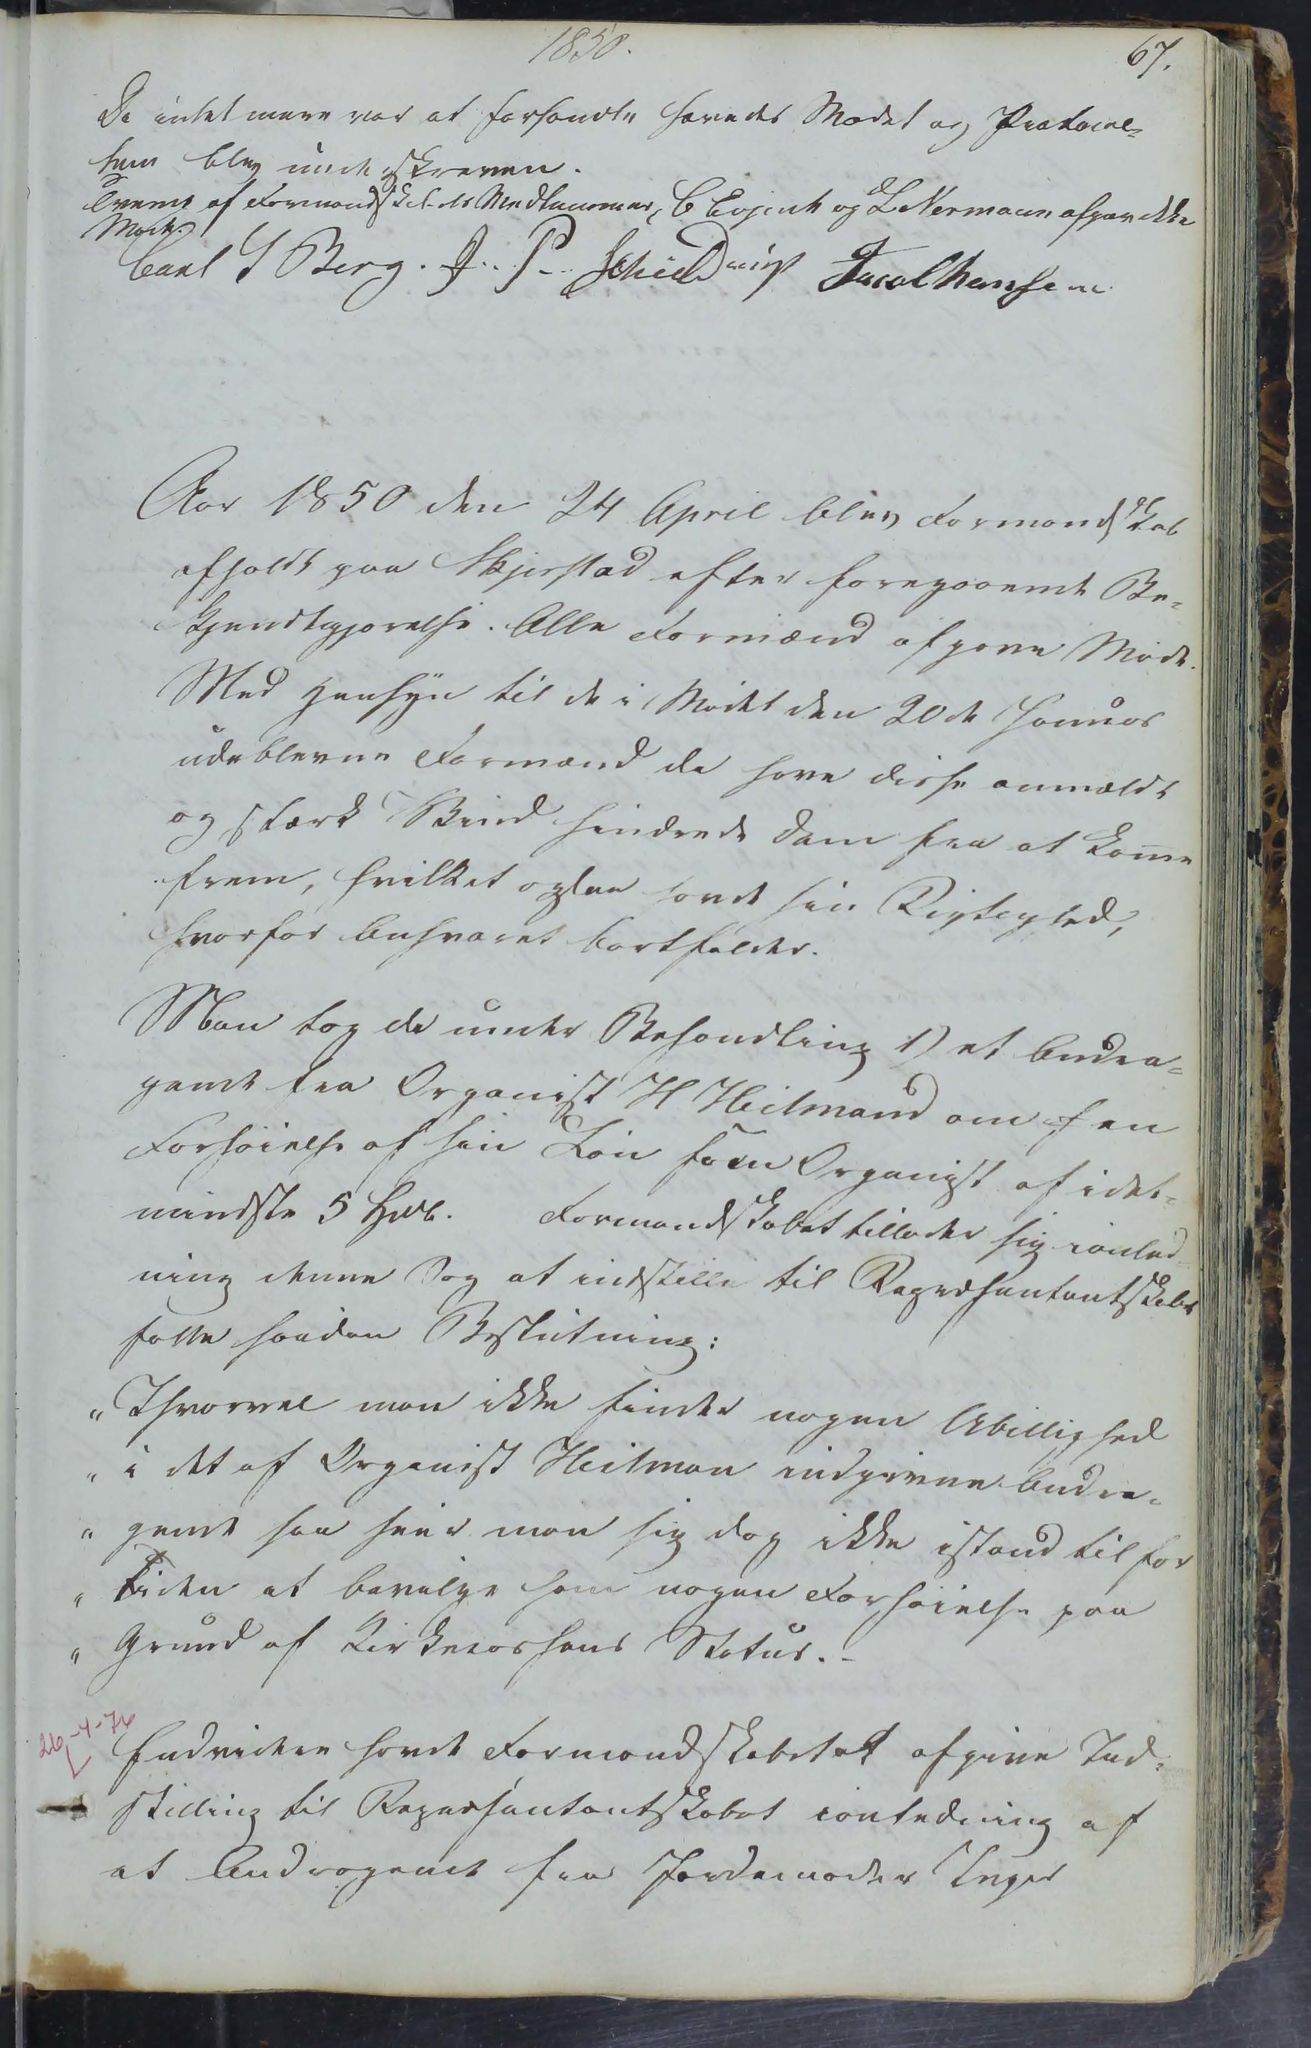 1850.
67.
Da intet mere var at forhandle hævedes Mødet og Protocol-
len blev underskreven.
Tvende af Formandskabets Medlemmer, C Evjenth og L Normann afgav ikke
Møde.
Carl S Berg. J. P. Schieldrup Jacob hansen
Aar 1850 den 24 April blev Formandskab
afholdt paa Skjerstad efter foregaaende Be-
kjendtgjørelse. Alle Formænd afgave Møde.
Med Hensyn til de i Mødet den 20de Januar
udeblevne Formænd da have disse anmeldt
og stærk Vind hindrede dem fra at komme
frem, hvilket ogsaa havde sin Rigtighed,
hvorfor Ansvaret bortfalder.
Man tog da under Behandling 1) et Andra-
gende fra Organist H Heitmand om en
Forhøielse af sin Løn som Organist af idet-
mindste 5 Spdlr. Formandskabet tillader sig ianled-
ning denne Sag at indstille til Repræsentantskabet
fatte saadan Beslutning:
" Ihvorvel man ikke finder nogen Ubillighed
" i det af Organist Heitman indgivne Andra-
" gende saa seer man sig dog ikke istand til for
" Tiden at bevilge ham nogen Forhøielse paa
" Grund af Kirkecassens Status. -
26-4-76
Endvidere havde Formandskabet at afgive Ind-
stilling til Repræsentantskabet ianledning af
et Andragende fra Jordemoder Inger